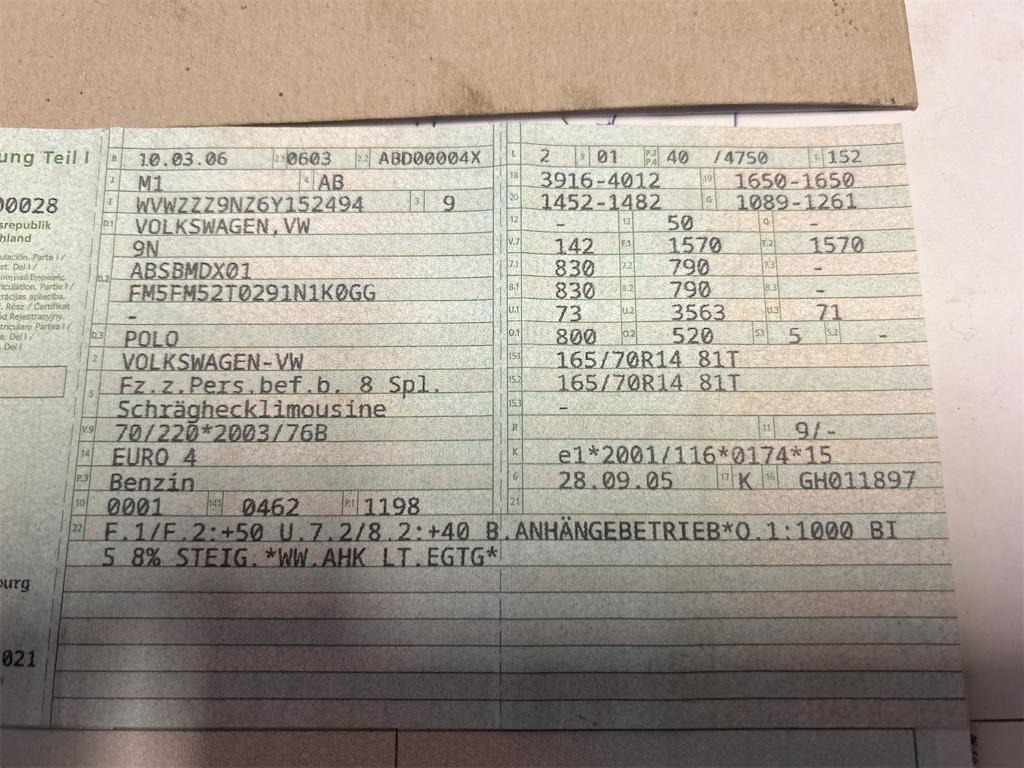 ung Teil I
00028
srepublik
hland
ourg
021
B 10.03.06 2.1 0603 2.2 ABD00004X
J M1 4 AB
E WVWZZZ9NZ6Y152494 3 9
D.1 VOLKSWAGEN,VW
9N
D.2 ABSBMDX01
FM5FM52T0291N1K0GG
-
D.3 POLO
2 VOLKSWAGEN-VW
5 Fz.z.Pers.bef.b. 8 Spl.
Schräghecklimousine
V.9 70/220*2003/76B
14 EURO 4
P.3 Benzin
10 0001 14.1 0462 P.1 1198
L 2 9 01 P.2 P.4 40 /4750 T 152
18 3916-4012 19 1650-1650
20 1452-1482 G 1089-1261
12 - 13 50 Q -
V.7 142 F.1 1570 F.2 1570
7.1 830 7.2 790 7.3 -
8.1 830 8.2 790 8.3 -
U.1 73 U.2 3563 U.3 71
O.1 800 O.2 520 S.1 5 S.2 -
15.1 165/70R14 81T
15.2 165/70R14 81T
15.3 -
R 11 9/-
K e1*2001/116*0174*15
6 28.09.05 17 K 16 GH011897
21
22 F.1/F.2:+50 U.7.2/8.2:+40 B.ANHÄNGEBETRIEB*O.1:1000 BI
S 8% STEIG.*WW.AHK LT.EGTG*